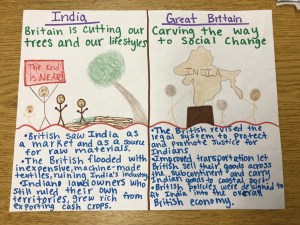 India
Britain is cutting our
trees and our lifestyles
The End
is NEAR!
• British saw India as
a market and as a source
for raw materials.
• The British flooded with
inexpensive, machine-made
textiles, ruining India's industry
• Indians landowners who
still ruled their own
territories, grew rich from
exporting cash crops.
Great Britain
Carving the way
to Social Change
INDIA
• The British revised the
legal system to protect
and promote Justice for
Indians
• Improved transportation let
British sell their goods across
the subcontinent and carry
Indian goods to coastal ports
• British policies were designed to
fit India into the overall
British economy.